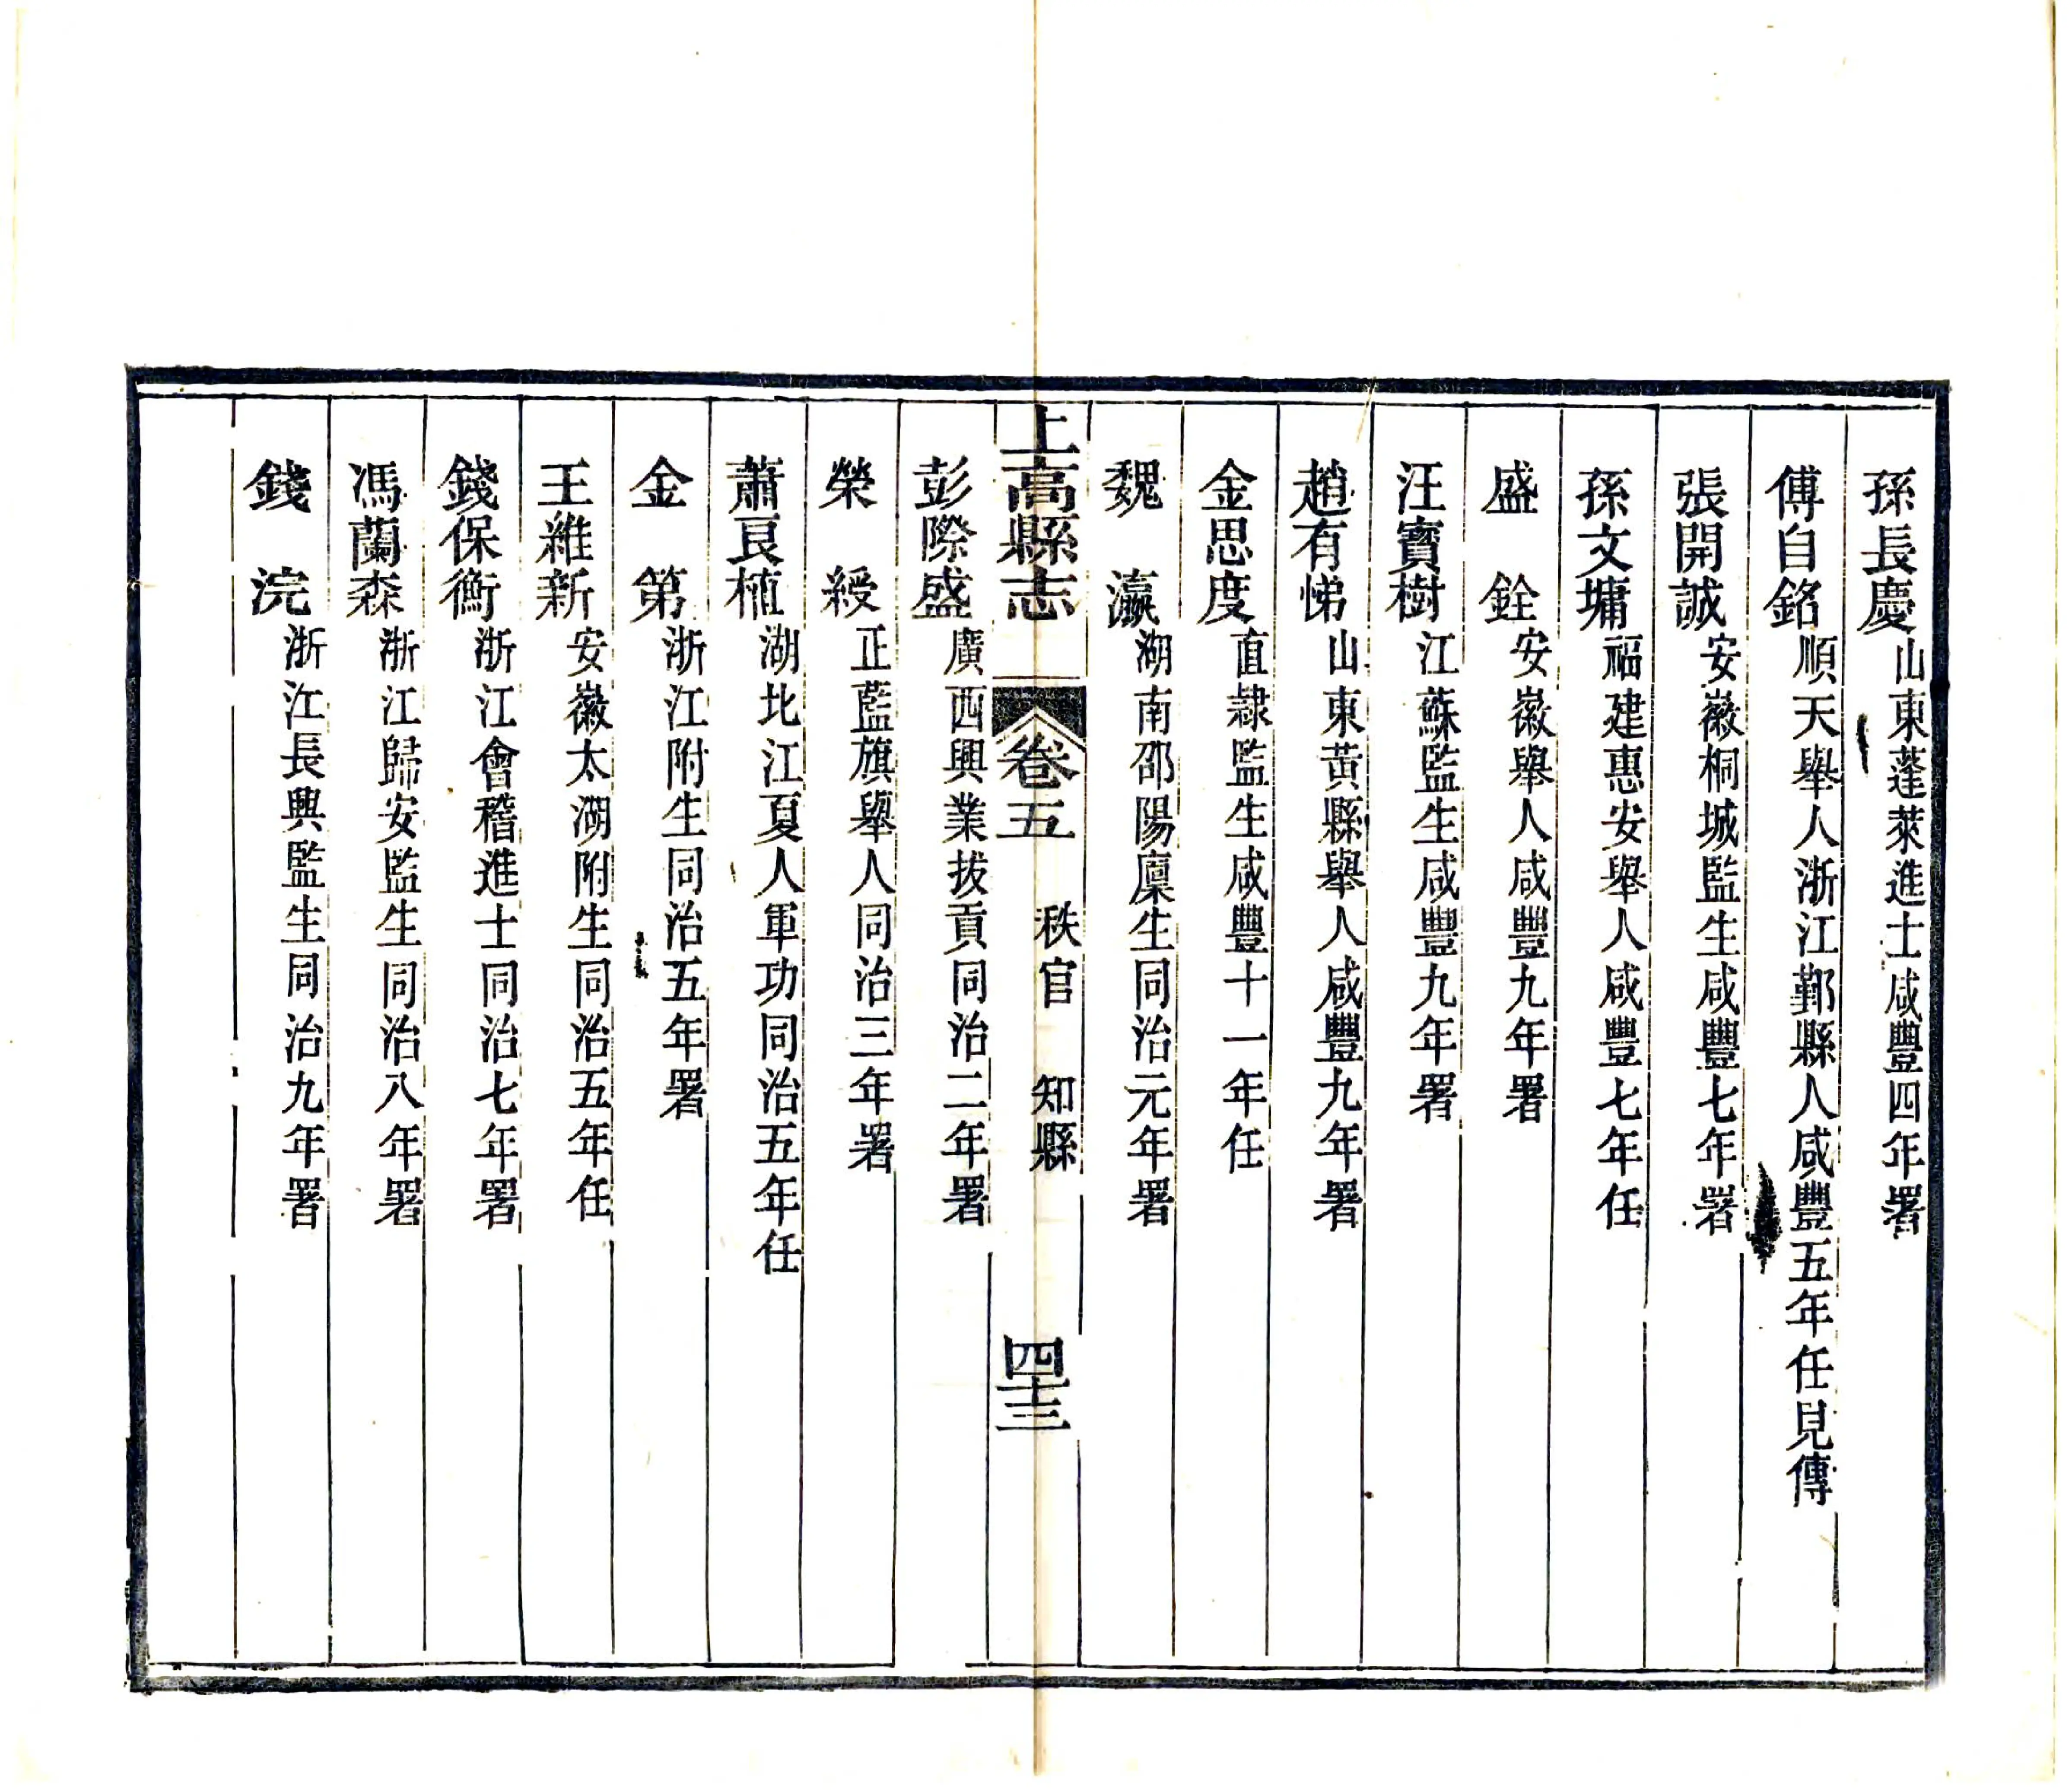 孫長慶山東蓬萊進士咸豐四年署
傅自銘順天舉人浙江鄞縣人咸豐五年任見傳
張開誠安徽桐城監生咸豐七年署
孫文墉福建惠安舉人咸豐七年任
盛銓安徽舉人咸豐九年署
汪寶樹江蘇監生咸豐九年署
趙有悌山東黃縣舉人咸豐九年署
金思度直隸監生咸豐十一年任
魏瀛湖南邵陽廩生同治元年署
上高縣志 卷五 秩官 知縣 四十三
彭際盛廣西興業拔貢同治二年署
榮綬正藍旗舉人同治三年署
蕭艮植湖北江夏人軍功同治五年任
金第浙江附生同治五年署
王維新安徽太湖附生同治五年任
錢保衡浙江會稽進士同治七年署
馮蘭森浙江歸安監生同治八年署
錢浣浙江長興監生同治九年署